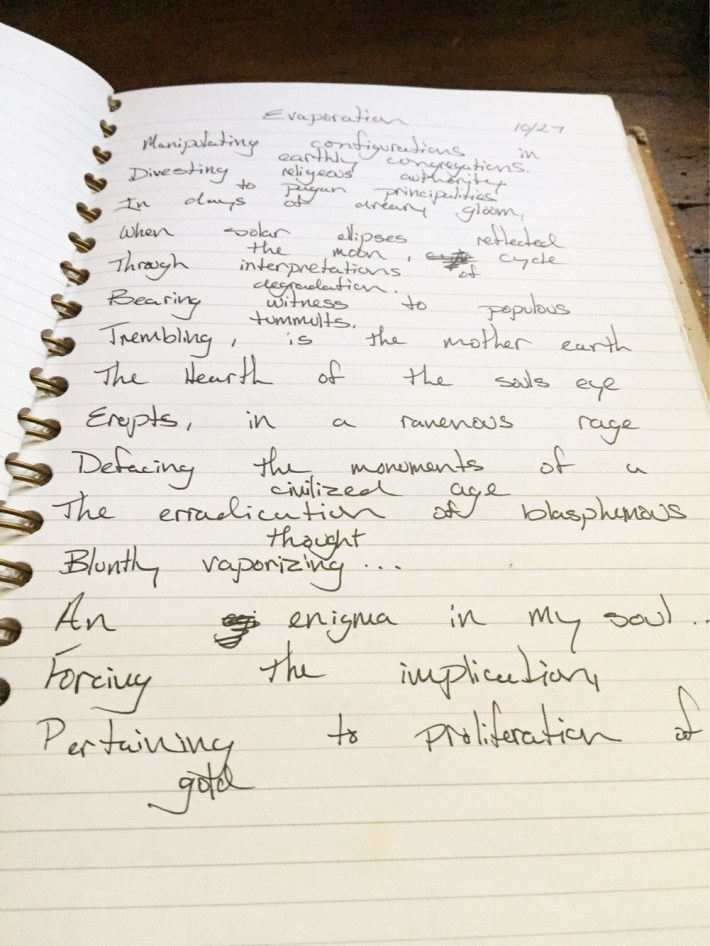 Evaporation
10/27
Manipulating configurations in
earthly congregations.
Divesting religeous authority
to pagan principalities
In days of dreary gloom,
When solar ellipses reflected
the moon, cycle
Through interpretations of
degradation.
Bearing witness to populous
tummults.
Trembling, is the mother earth
The Hearth of the souls eye
Erupts, in a ravenous rage
Defacing the monuments of a
civilized age
The erradication of blasphemous
thought
Bluntly vaporizing...
An enigma in my soul..
Forcing the implication,
Pertaining to proliferation of
gold